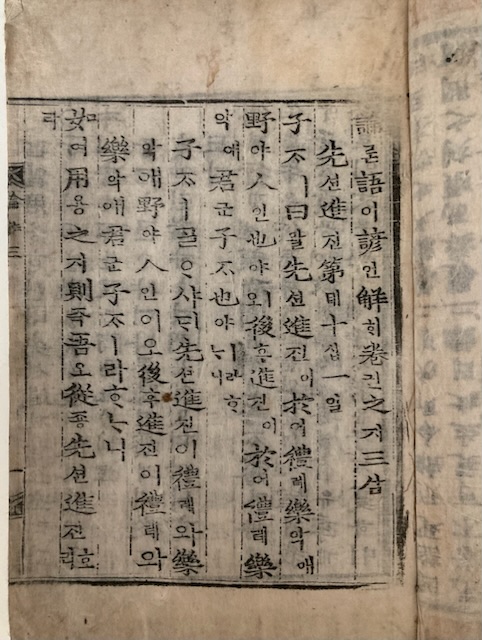 論론語어諺언解ᄒᆡ卷권之지三삼
先션進진第뎨十십一일
子ᄌᆞㅣ曰왈先션進진이於어禮례樂악애
野야人인也야ㅣ오後후進진이於어禮례樂
악애君군子ᄌᆞ也야ㅣ라ᄒᆞᄂᆞ니
子ᄌᆞㅣᄀᆞᆯᄋᆞ샤ᄃᆡ先션進진이禮례와樂
악애野야人인이오後후進진이禮례와
樂악애君군子ᄌᆞㅣ라ᄒᆞᄂᆞ니
如여用용之지則즉吾오從종先션進진호리
라